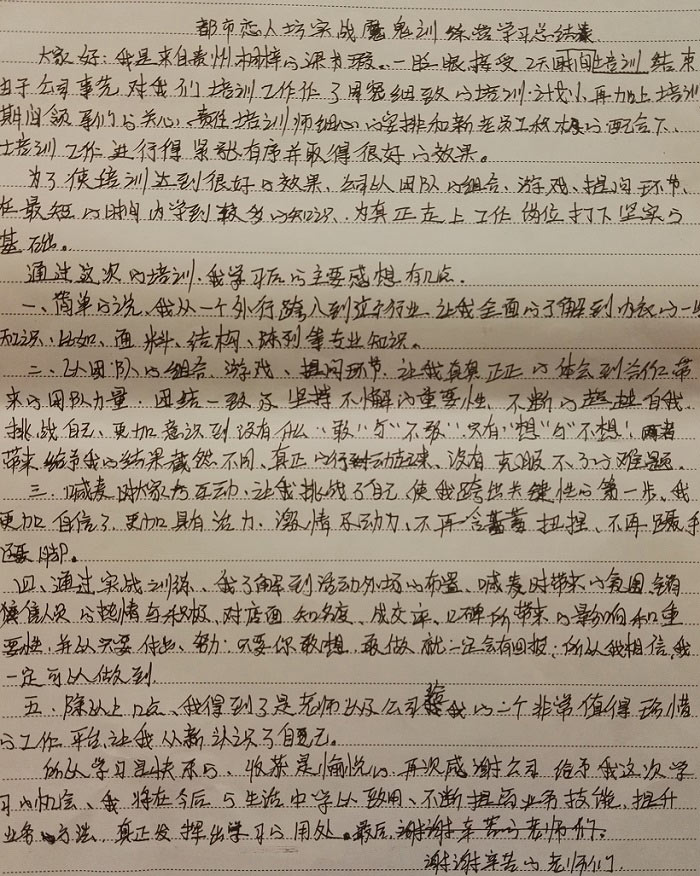 都市恋人坊实战魔鬼训练营学习总结表
大家好：我是来自贵州相梓的梁书瑕。一眨眼接受2天时间培训结束
由于公司事先对我们培训工作作了周密细致的培训计划，再加上培训
期间领导们的关心、责任培训师细心的安排和新老员工积极的配合下
培训工作进行得紧张有序并取得很好的效果。
为了使培训达到很好的效果、公司以团队的组合、游戏、提问环节、
在最短的时间内学到较多的知识、为真正走上工作岗位打下坚实的
基础。
通过这次的培训、我学习后的主要感想有几点.
一、简单的说、我从一个外行跨入到这行业、让我全面的了解到内衣的一些
知识、比如、面料、结构、陈列等专业知识。
二、以团队的组合、游戏、提问环节、让我真真正正的体会到合作带
来的团队力量、团结一致及坚持不懈的重要性、不断的超越自我、
挑战自己、更加意识到没有什么"敢"与"不敢"、只有"想"与"不想"、两者
带来给予我的结果截然不同、真正的行动起来、没有克服不了的难题.
三、喊麦时大家的互动、让我挑战了自己使我跨出关键性的第一步、我
更加自信了、更加具有活力、激情及动力、不再会扭捏、不再蹑手
蹑脚。
四、通过实战训练、我了解到活动外场的布置、喊麦时带来的氛围销
售人员的热情与积极、对店面知名度、成交率、口碑所带来的影响和重
要性、并从只要付出、努力、只要你敢想、敢做就一定会有回报；所以我相信、我
一定可以做到.
五、除以上几点、我得到了是老师以及公司给我的一个非常值得珍惜
的工作平台、让我从新认识了自己。
所以学习是快乐的、收获是愉悦的、再次感谢公司给予我这次学
习的机会、我将在今后的生活中学以致用、不断提高业务技能、提升
业务的方法、真正发挥出学习的用处。最后谢谢辛苦的老师们。
谢谢辛苦的老师们.